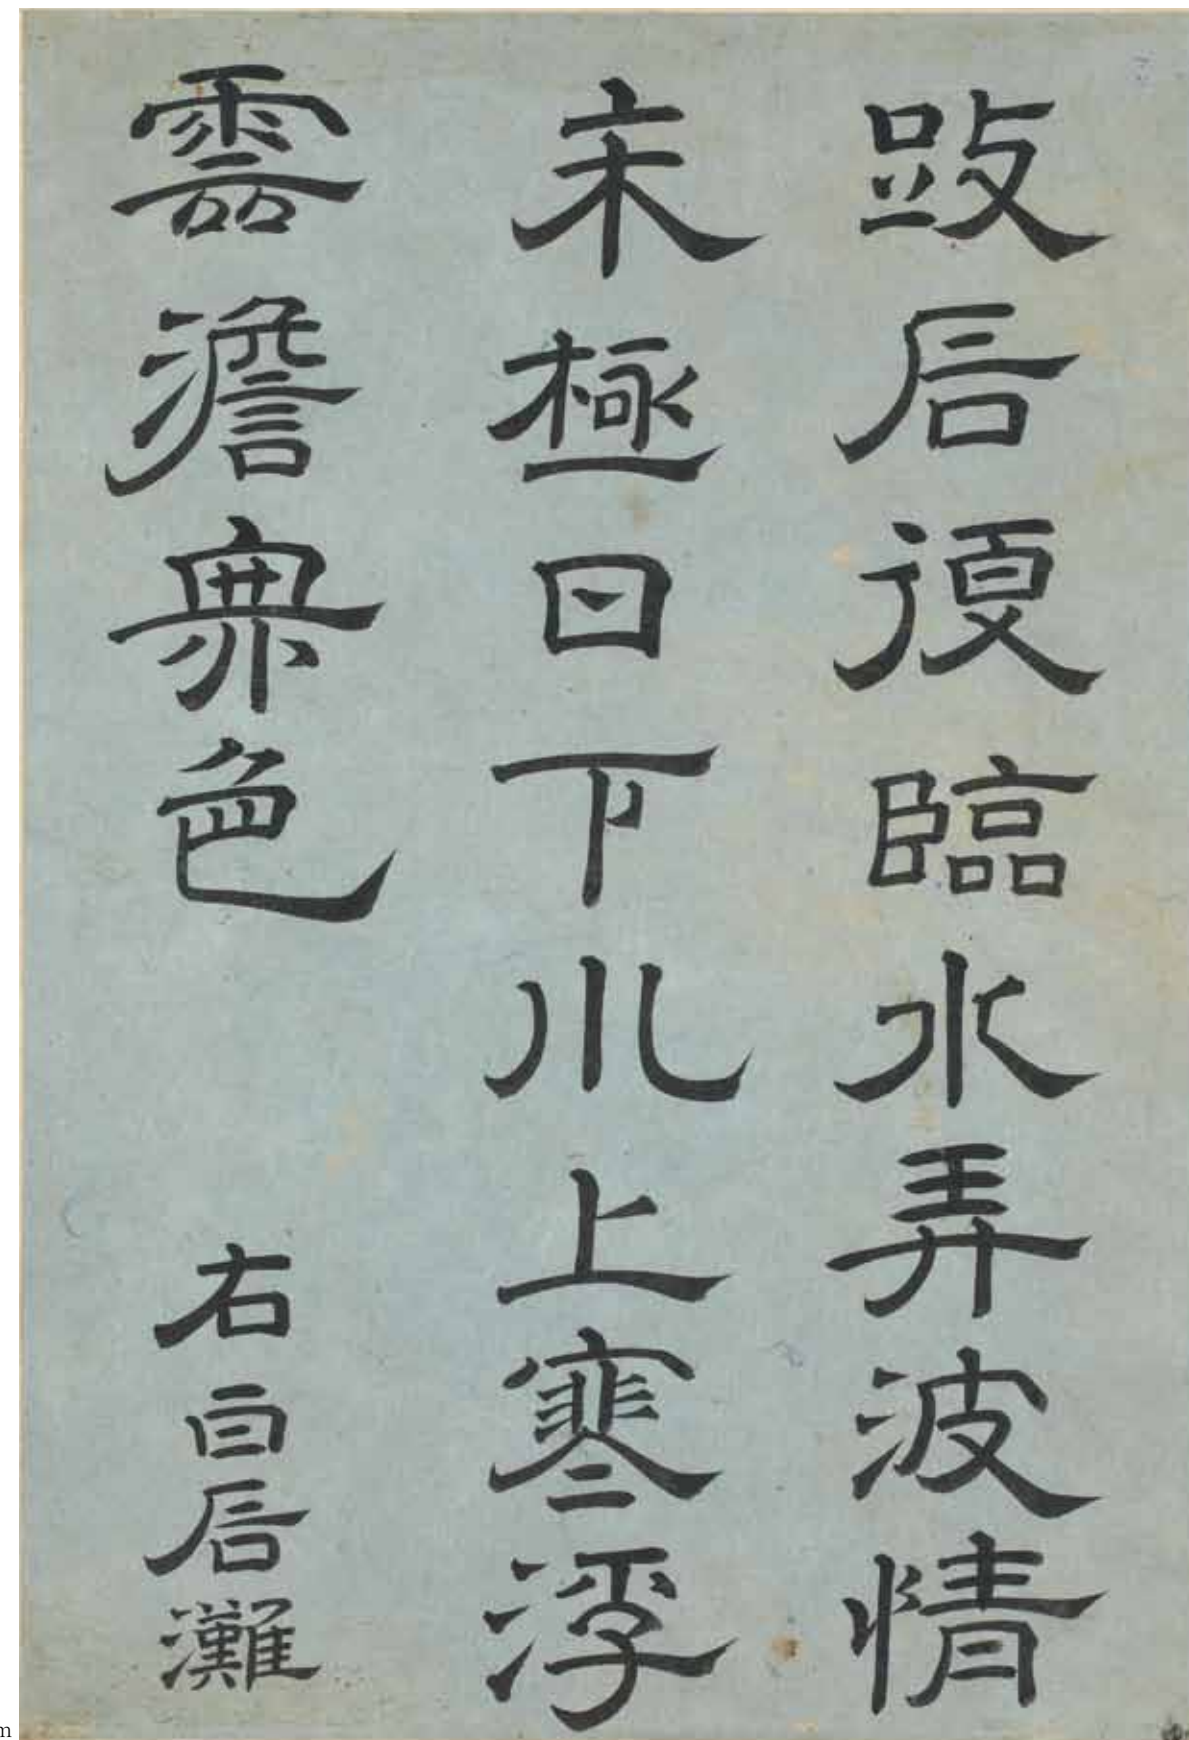 跂石復臨水弄波情
未極日下川上寒浮
雲澹無色
右白石灘
m